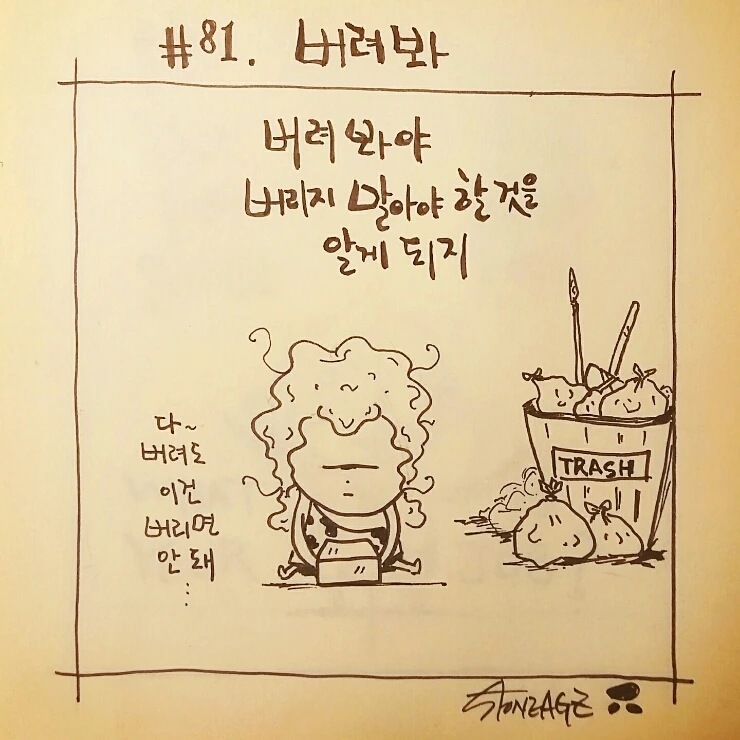 #81. 버려봐
버려 봐야
버리지 말아야 할 것을
알게 되지
다~
버려도
이건
버리면
안 돼
...
TRASH
STONZAGZ